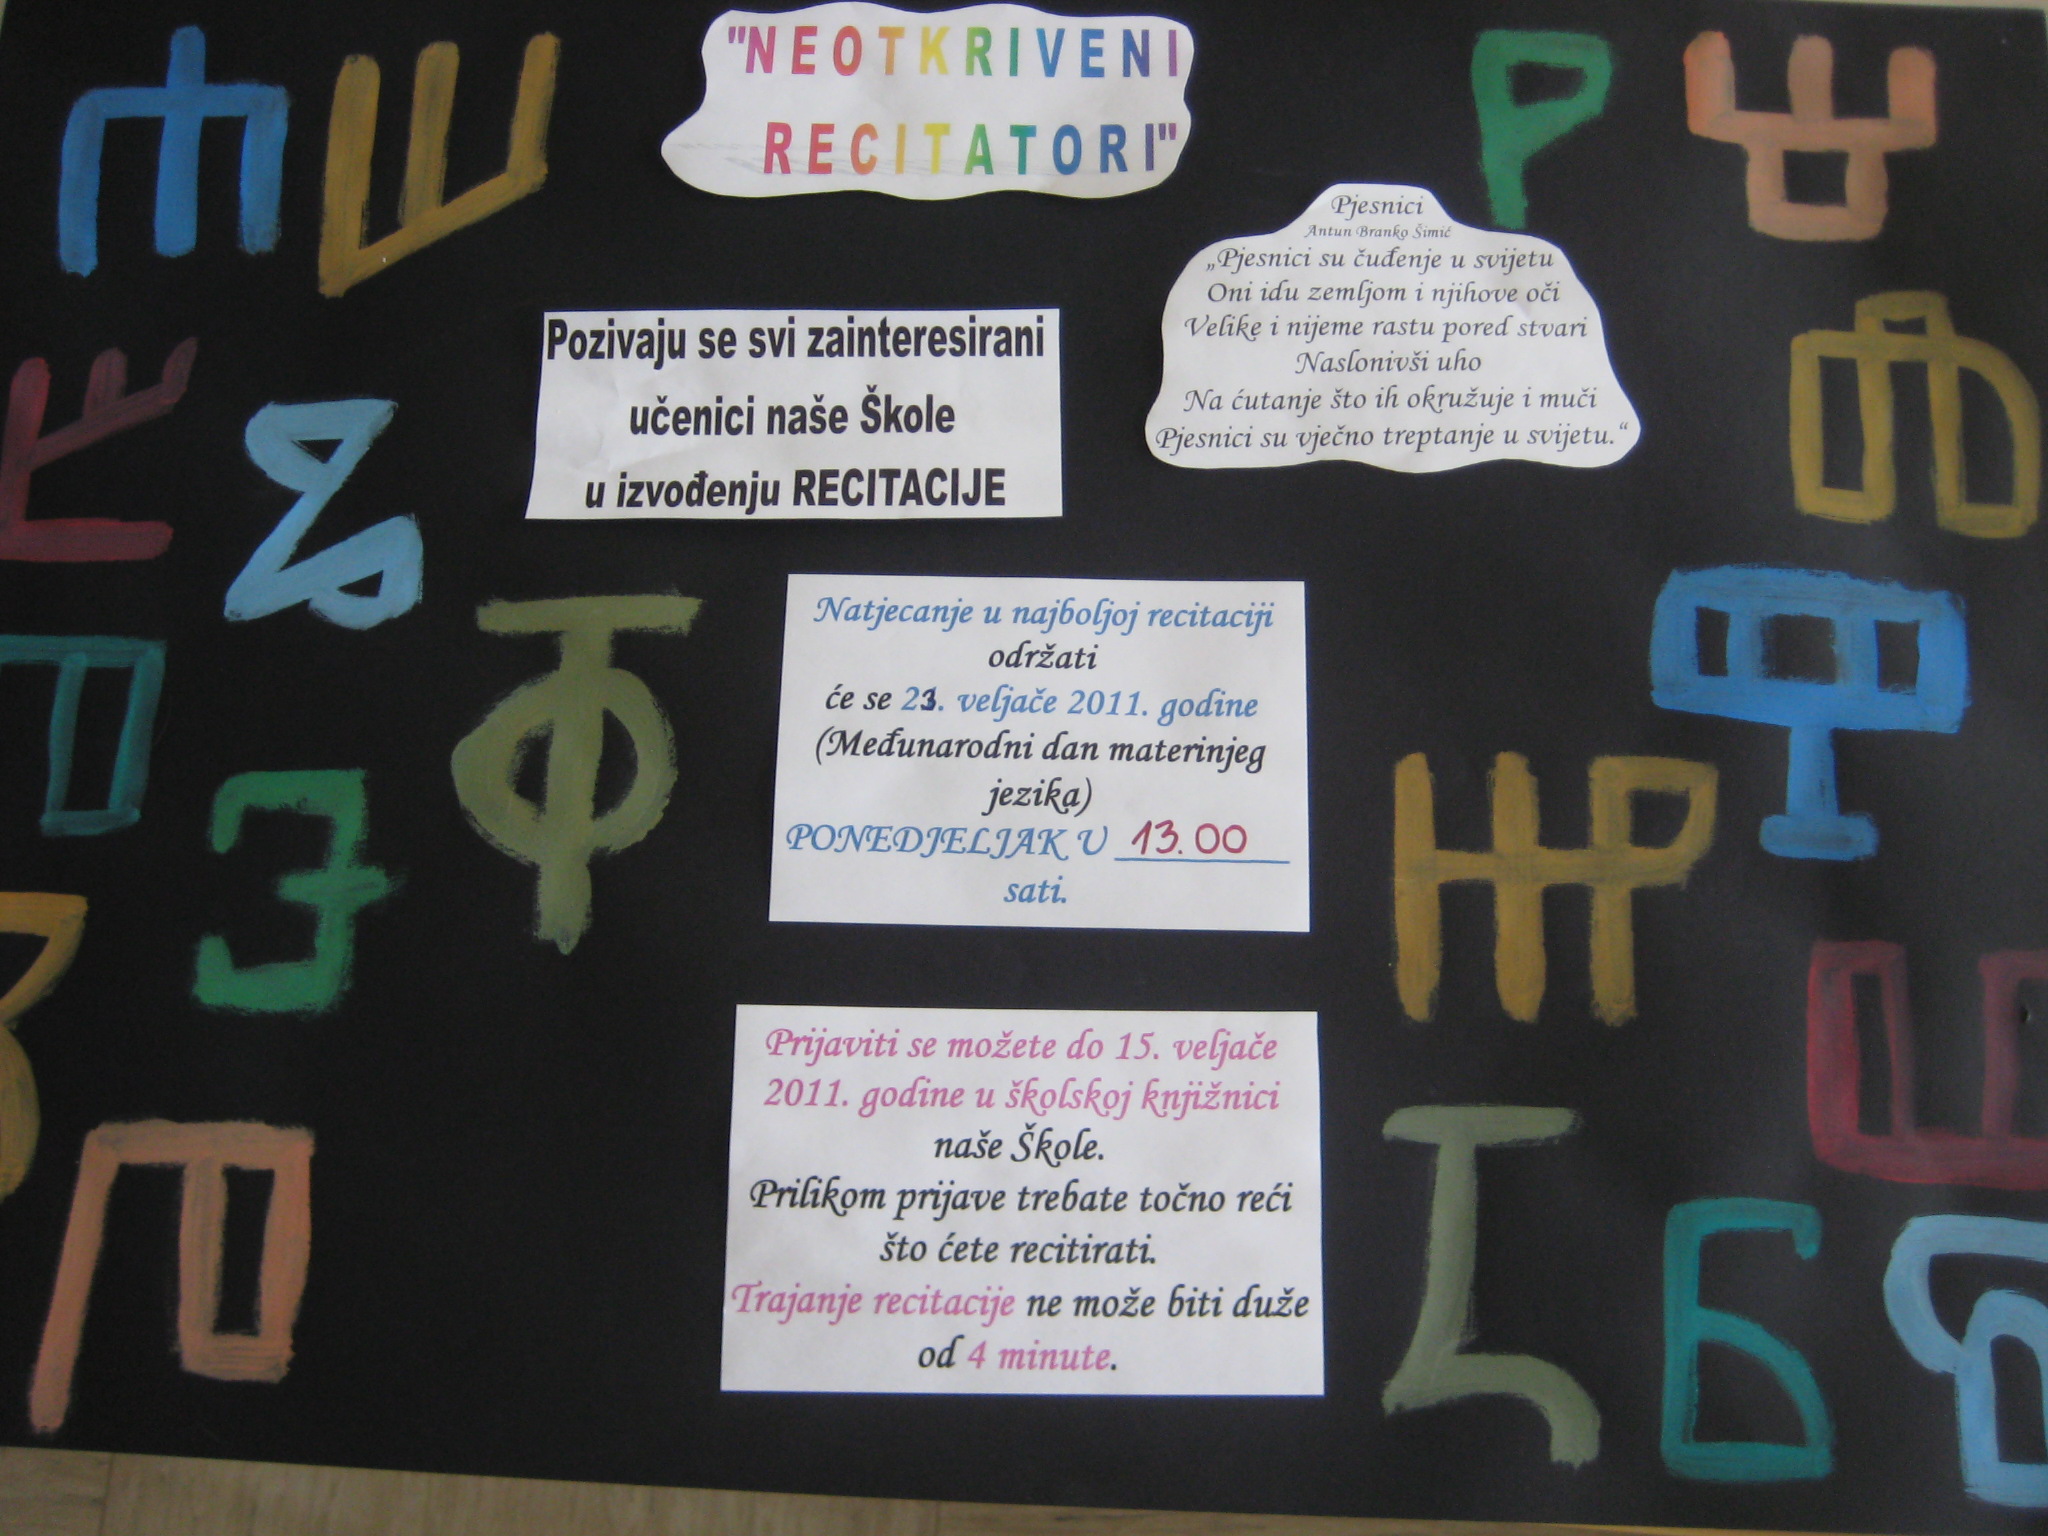 "NEOTKRIVENI
RECITATORI"
Pjesnici
Antun Branko Šimić
„Pjesnici su čuđenje u svijetu
Oni idu zemljom i njihove oči
Velike i nijeme rastu pored stvari
Naslonivši uho
Na ćutanje što ih okružuje i muči
Pjesnici su vječno treptanje u svijetu.“
Pozivaju se svi zainteresirani
učenici naše Škole
u izvođenju RECITACIJE
Natjecanje u najboljoj recitaciji
održati
će se veljače 2011. godine
(Međunarodni dan materinjeg
jezika)
PONEDJELJAK U 13.00
sati.
Prijaviti se možete do 15. veljače
2011. godine u školskoj knjižnici
naše Škole.
Prilikom prijave trebate točno reći
što ćete recitirati.
Trajanje recitacije ne može biti duže
od 4 minute.